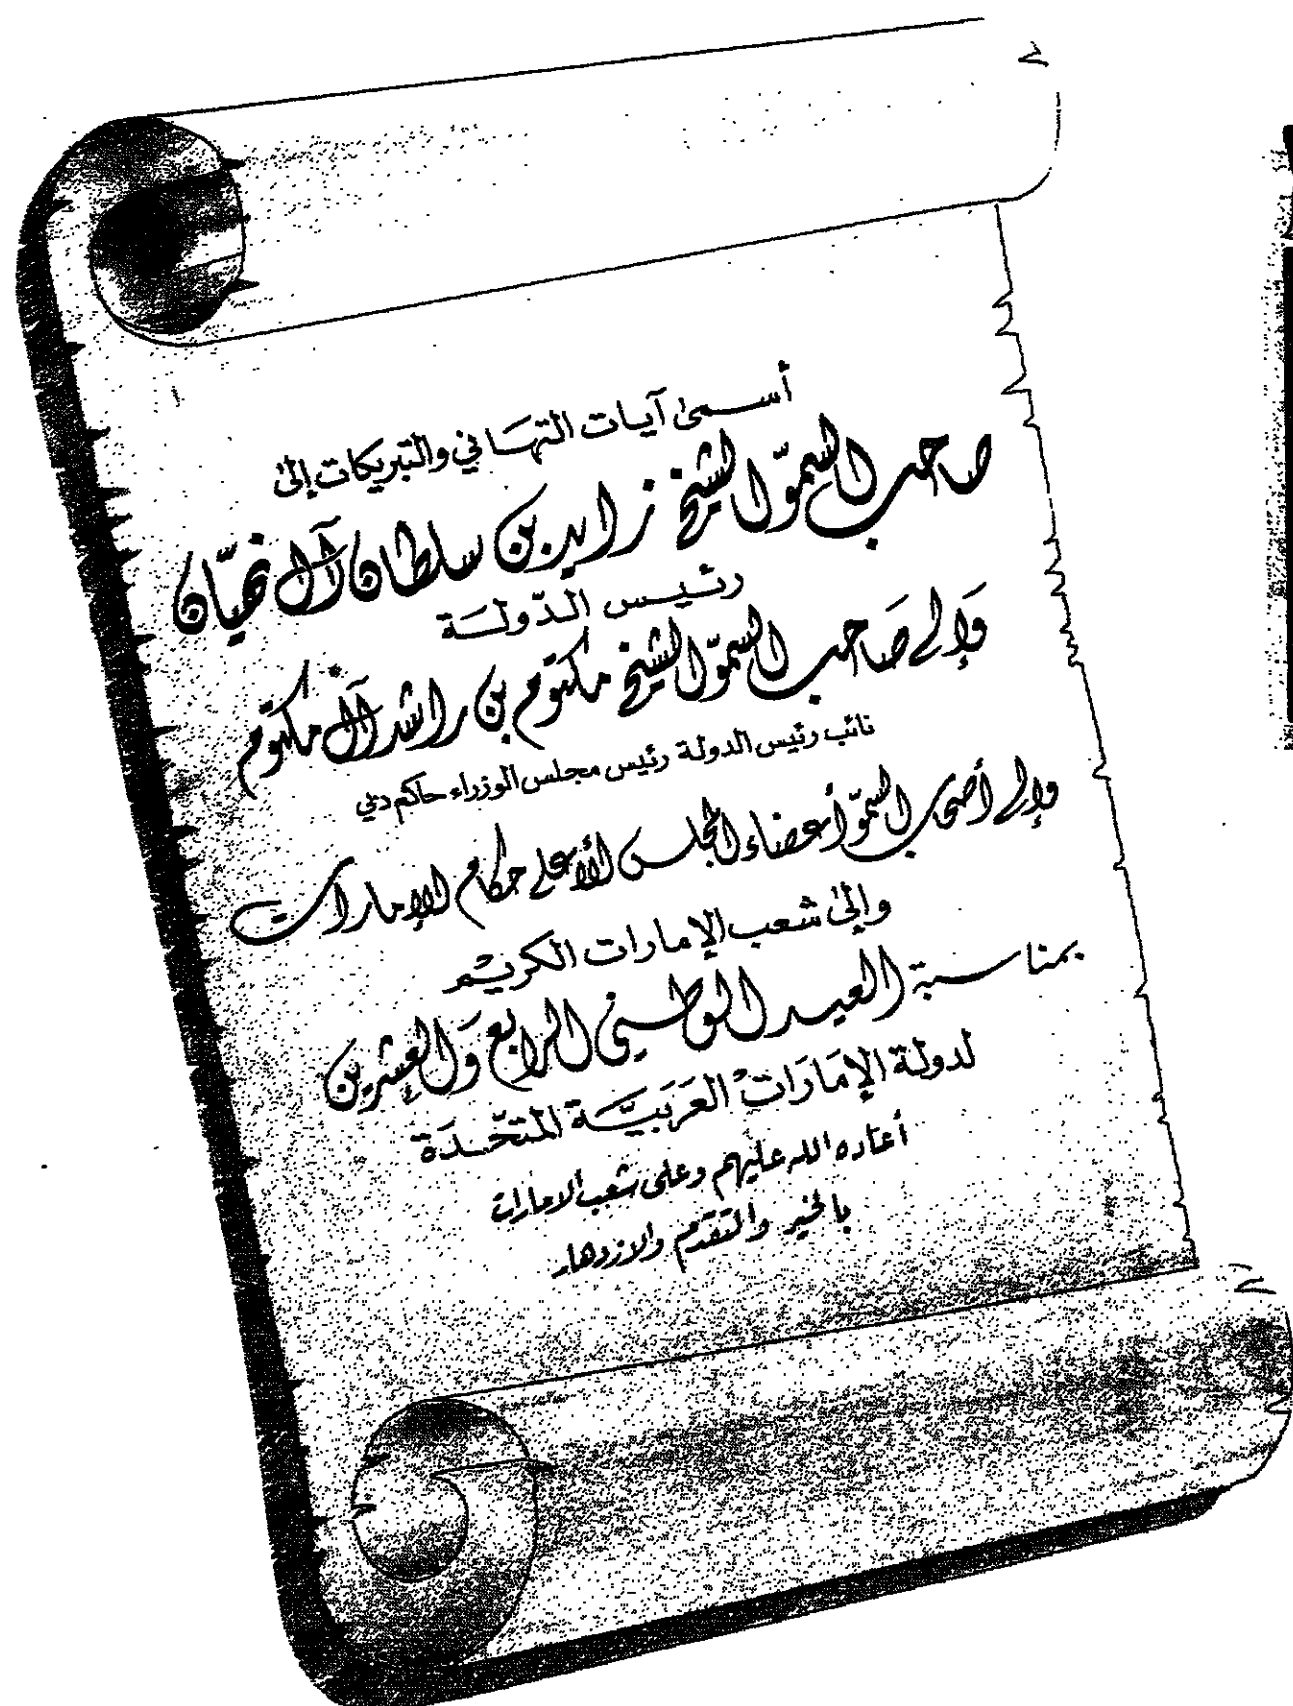 أسمى آيات التهاني والتبريكات إلى
صاحب السموّ الشيخ زايد بن سلطان آل نهيّان
رئيس الدّولة
وَإلى صَاحب السموّ الشيخ مكتوم بن راشد آل مكتوم
نائب رئيس الدولة رئيس مجلس الوزراء حاكم دبي
وإلى أصحاب السموّ أعضاء المجلس الأعلى حكام الإمارات
وإلى شعب الإمارات الكريم
بمناسبة العيد الوطني الرابع وَالعشرين
لدولة الإمَارَات العَرَبيَّة المتحّدَة
أعاده الله عليهم وعلى شعب الامارات
بالخير والتقدم والازدهار